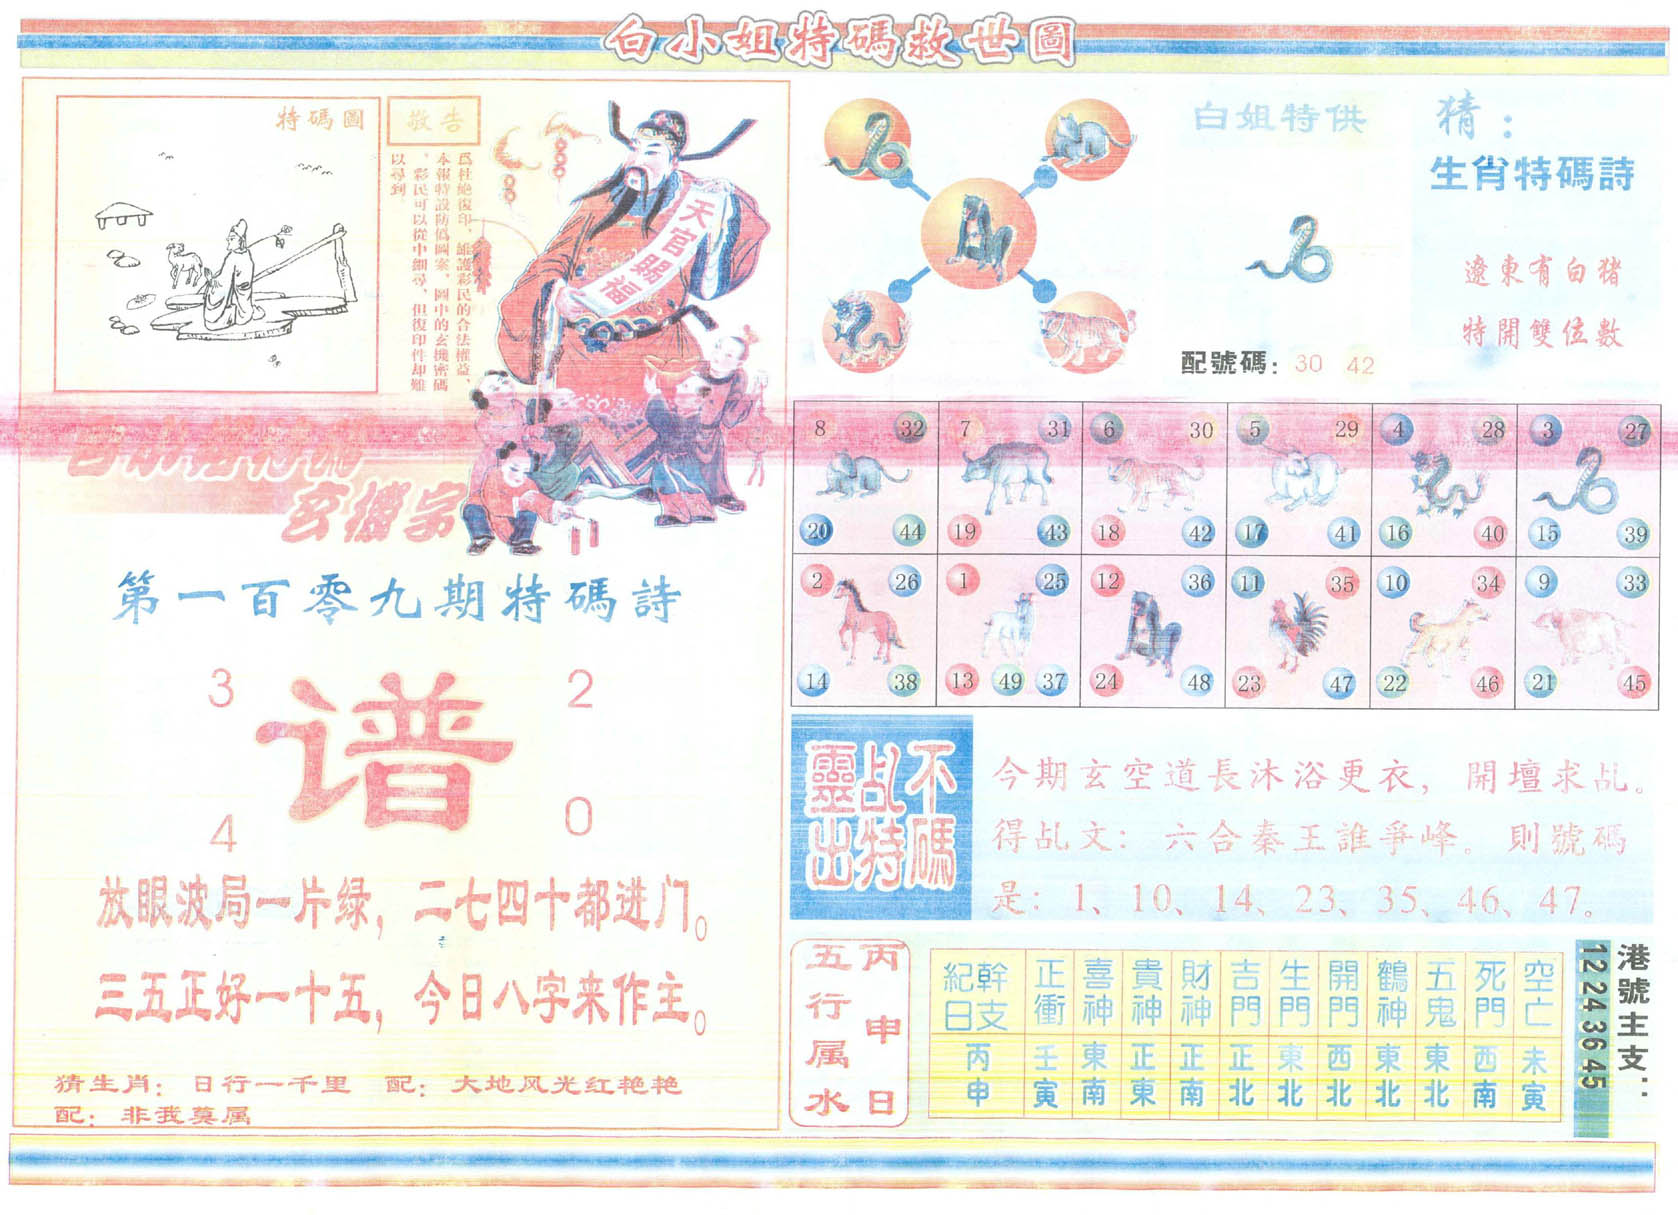 白小姐特碼救世圖
特碼圖
敬告
爲杜絶復印、維護彩民的合法權益、
本報特設防僞圖案、圖中的玄機密碼
、彩民可以從中細尋、但復印件却難
以尋到
天官賜福
玄機字
第一百零九期特碼詩
3 2
谱
4 0
放眼波局一片绿，二七四十都进门。
三五正好一十五，今日八字来作主。
猜生肖：日行一千里 配：大地风光红艳艳
配：非我莫属
白姐特供
配號碼：30 42
猜：
生肖特碼詩
遼東有白猪
特開雙位數
8 32 7 31 6 30 5 29 4 28 3 27
20 44 19 43 18 42 17 41 16 40 15 39
2 26 1 25 12 36 11 35 10 34 9 33
14 38 13 49 37 24 48 23 47 22 46 21 45
不碼
乩特
靈出
今期玄空道長沐浴更衣，開壇求乩。
得乩文：六合秦王誰爭峰。則號碼
是：1、10、14、23、35、46、47。
丙申日
五行属水
紀日幹支 正衝 喜神 貴神 財神 吉門 生門 開門 鶴神 五鬼 死門 空亡
丙申 壬寅 東南 正東 正南 正北 東北 西北 東北 東北 西南 未寅
港號主支：
12 24 36 45